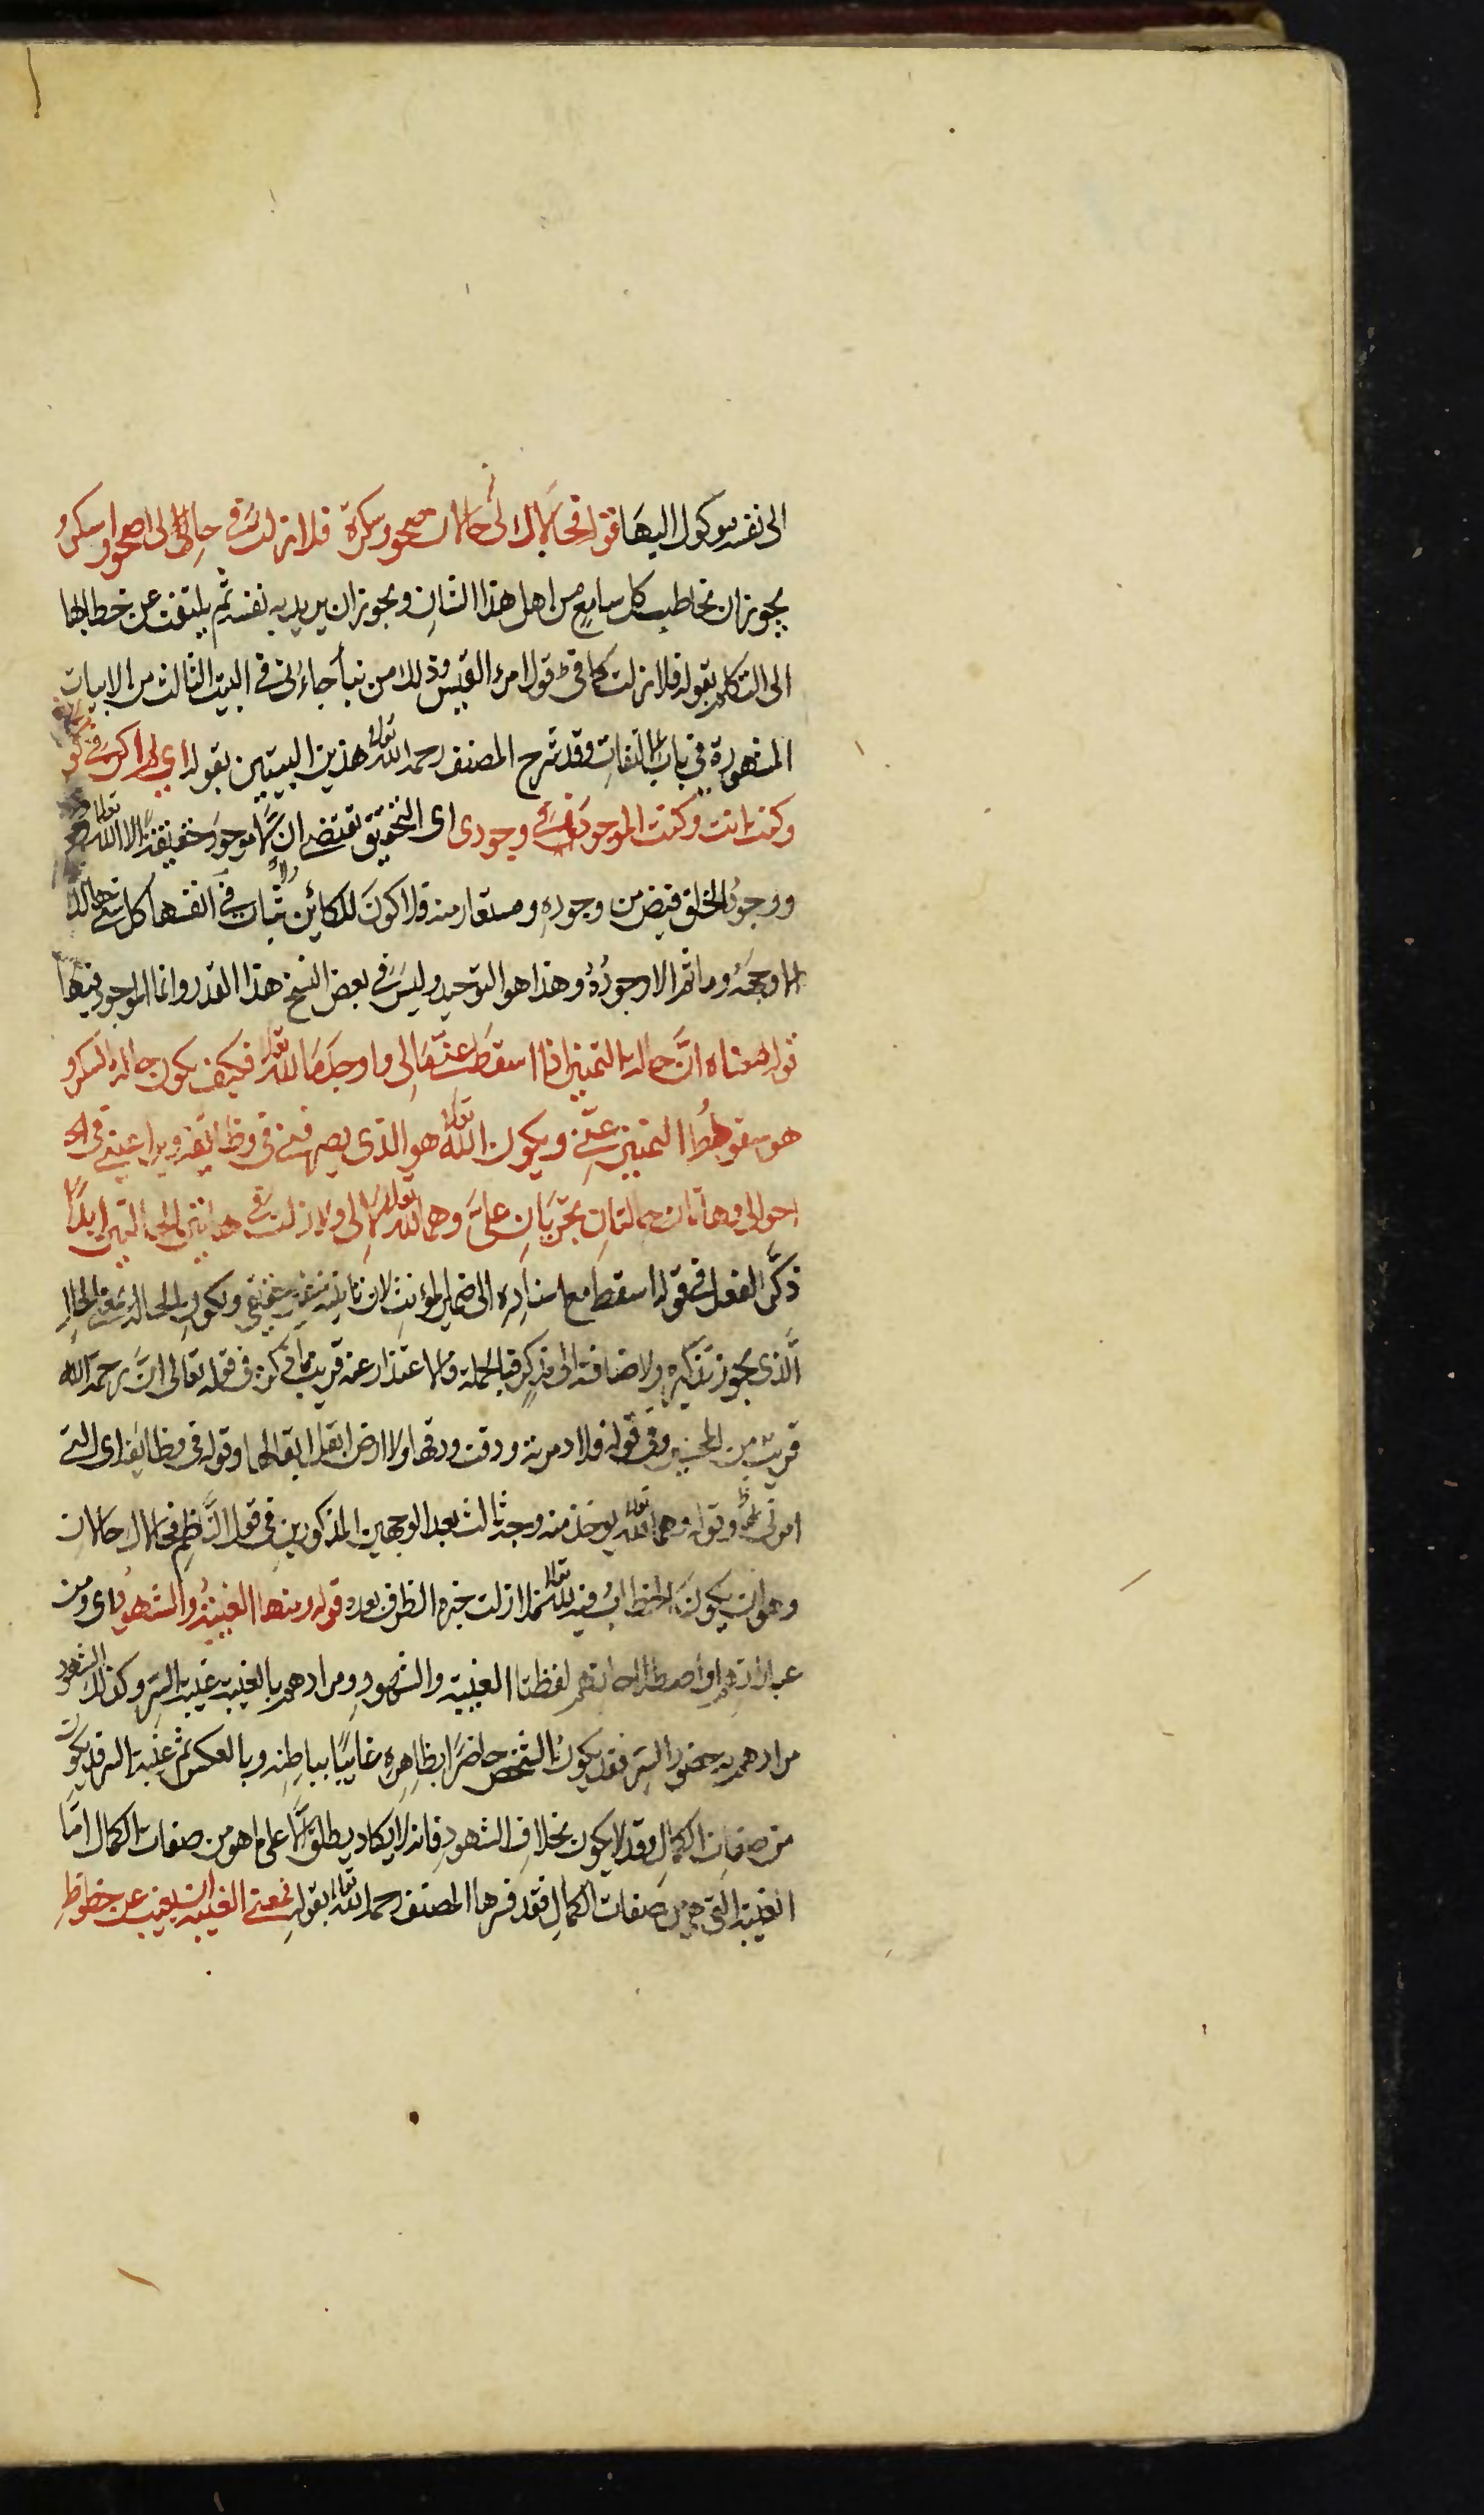 الى نفسه موكول اليها قوله فحالاك لى حالان صحو وسكرة فلا زلت فى حالىّ لى اصحو واسكرُ
يجوز ان يخاطب كل سامع من اهل هذا الشان ويجوز ان يريد به نفسه ثم يلتفت عن خطابها
الى التكلم بقوله فلا زلت كما فى قول امرء القيس وذلك من نبأ جاءنى فى البيت الثالث من الابيات
المشهورة فى باب الالتفات وقد شرح المصنف رحمه الله تعالى هذين البيتين بقوله اى لم اكن فى
وكنت انت وكنت الموجود فى وجودى اى التحقيق تقتضى ان لا موجود حقيقة الا الله تعالى
ووجود الخلق فيض من وجوده ومستعار منه فلا كون للكائن ولا ثبات فى انفسها كل شئ هالك
الا وجهه وما ثم الا وجوده وهذا هو التوحيد وليس فى بعض النسخ هذا القدر وانما الموجود فيها
قوله معناه ان حالة التمييز اذا اسقط عنى مالى وأوجد ما لله تعالى فكيف يكون حالة السكر و
هو سقوط التمييز عنى ويكون الله تعالى هو الذى يصرفنى فى وظائفى ويراعينى فى
احوالى وهاتان حالتان تجريان علىّ وهما لله تعالى لا لى ولا زلت فى هاتين الحالتين ابدًا
ذكّر الفعل فى قوله اسقط مع اسناده الى ضمير المؤنث لان تانيثه غير حقيقى ويكون الحالة بمعنى الحال
الّذى يجوز تذكيره ولاضافته الى مذكر وبالجملة فالاعتذار عنه قريب مما ذكر فى قوله تعالى انّ رحمة الله
قريب من المحسنين وفى قوله فلا مزنة ودقت ودقها ولا ارض ابقل ابقالها وقوله فى وظائفى اى التى
امرنى بها وقوله وهما لله تعالى يوخذ منه وجه ثالث بعد الوجهين المذكورين فى قول النّاظم فحالاك حالان
وهو ان يكون الخطاب فيه لله تعالى فلا زلت خبره الظرف بعده قوله ومنها الغيبة والشهود اى ومن
عباراتهم واصطلاحاتهم لفظتا الغيبة والشهود ومرادهم بالغيبة غيبة السر وكذلك الشهود
مرادهم به حضور السر فقد يكون الشخص حاضرًا بظاهره غايبًا بباطنه وبالعكس ثم غيبة السر قد يكون
من صفات الكمال وقد لا يكون بخلاف الشهود فانه لا يكاد يطلق الا على ما هو من صفات الكمال امّا
الغيبة التى هى من صفات الكمال فقد فسرها المصنف رحمه الله تعالى بقوله فمعنى الغيبة ان يغيب عن حظوظ